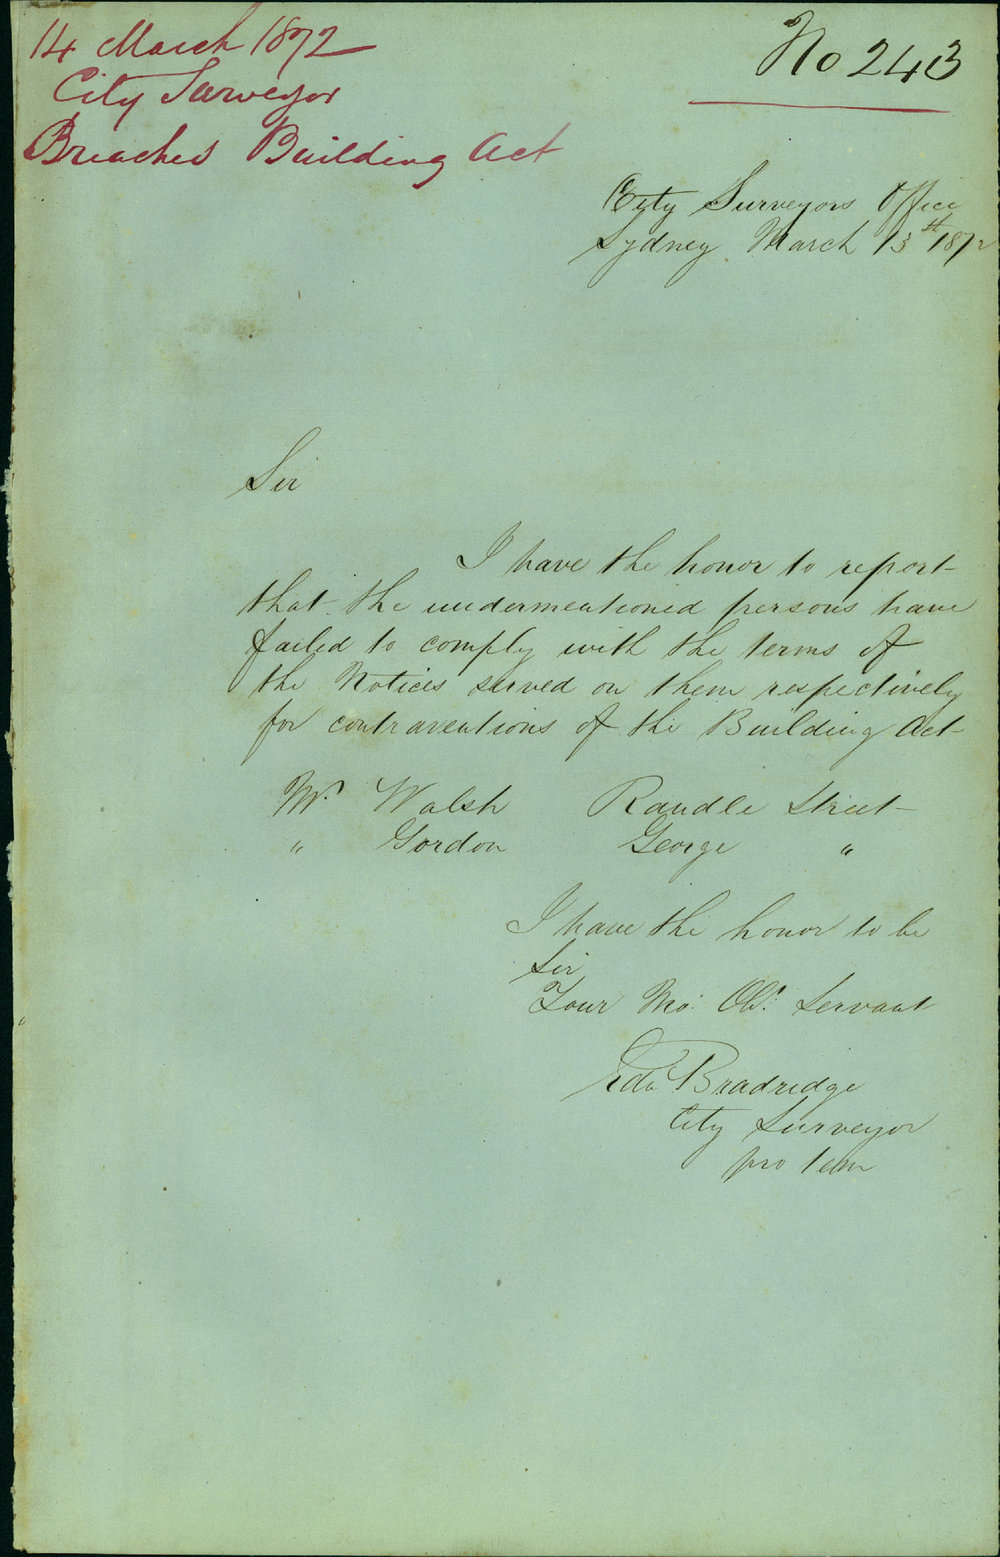 14 March 1872
City Surveyor
Breaches Building Act
No 243
City Surveyors Office
Sydney March 13th 1872
Sir
I have the honor to report
that the undermentioned persons have
failed to comply with the terms of
the Notices served on them respectively
for contraventions of the Building Act
Mr. Walsh Randle Street
" Gordon George "
I have the honor to be
Sir
Your Mo: Obt. Servant
Edw Bradridge
City Surveyor
pro tem